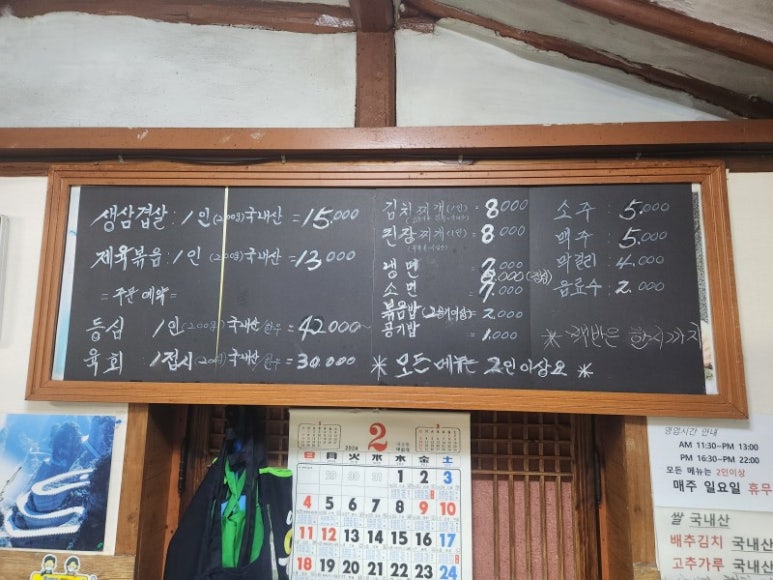 생삼겹살 : 1인 (200g) 국내산 = 15.000
제육볶음 : 1인 (200g) 국내산 = 13.000
= 주문 예약 =
등심 1인 (200g) 국내산 한우 = 42.000
육회 1접시 (200g) 국내산 한우 = 30.000
김치찌개 (1인) = 8.000
된장찌개 (1인) = 8.000
냉면
소면 7.000
볶음밥 (2공기이상) = 2.000
공기밥 1.000
소주 : 5.000
맥주 : 5.000
막걸리 : 4.000
음료수 : 2.000
※ 모든 메뉴는 2인 이상요 ※
2024
2
日 月 火 水 木 金 土
1 2 3
4 5 6 7 8 9 10
11 12 13 14 15 16 17
18 19 20 21 22 23 24
영업시간 안내
AM 11:30~PM 13:00
PM 16:30~PM 22:00
모든 메뉴는 2인이상
매주 일요일 휴무
쌀 국내산
배추김치 국내산
고추가루 국내산